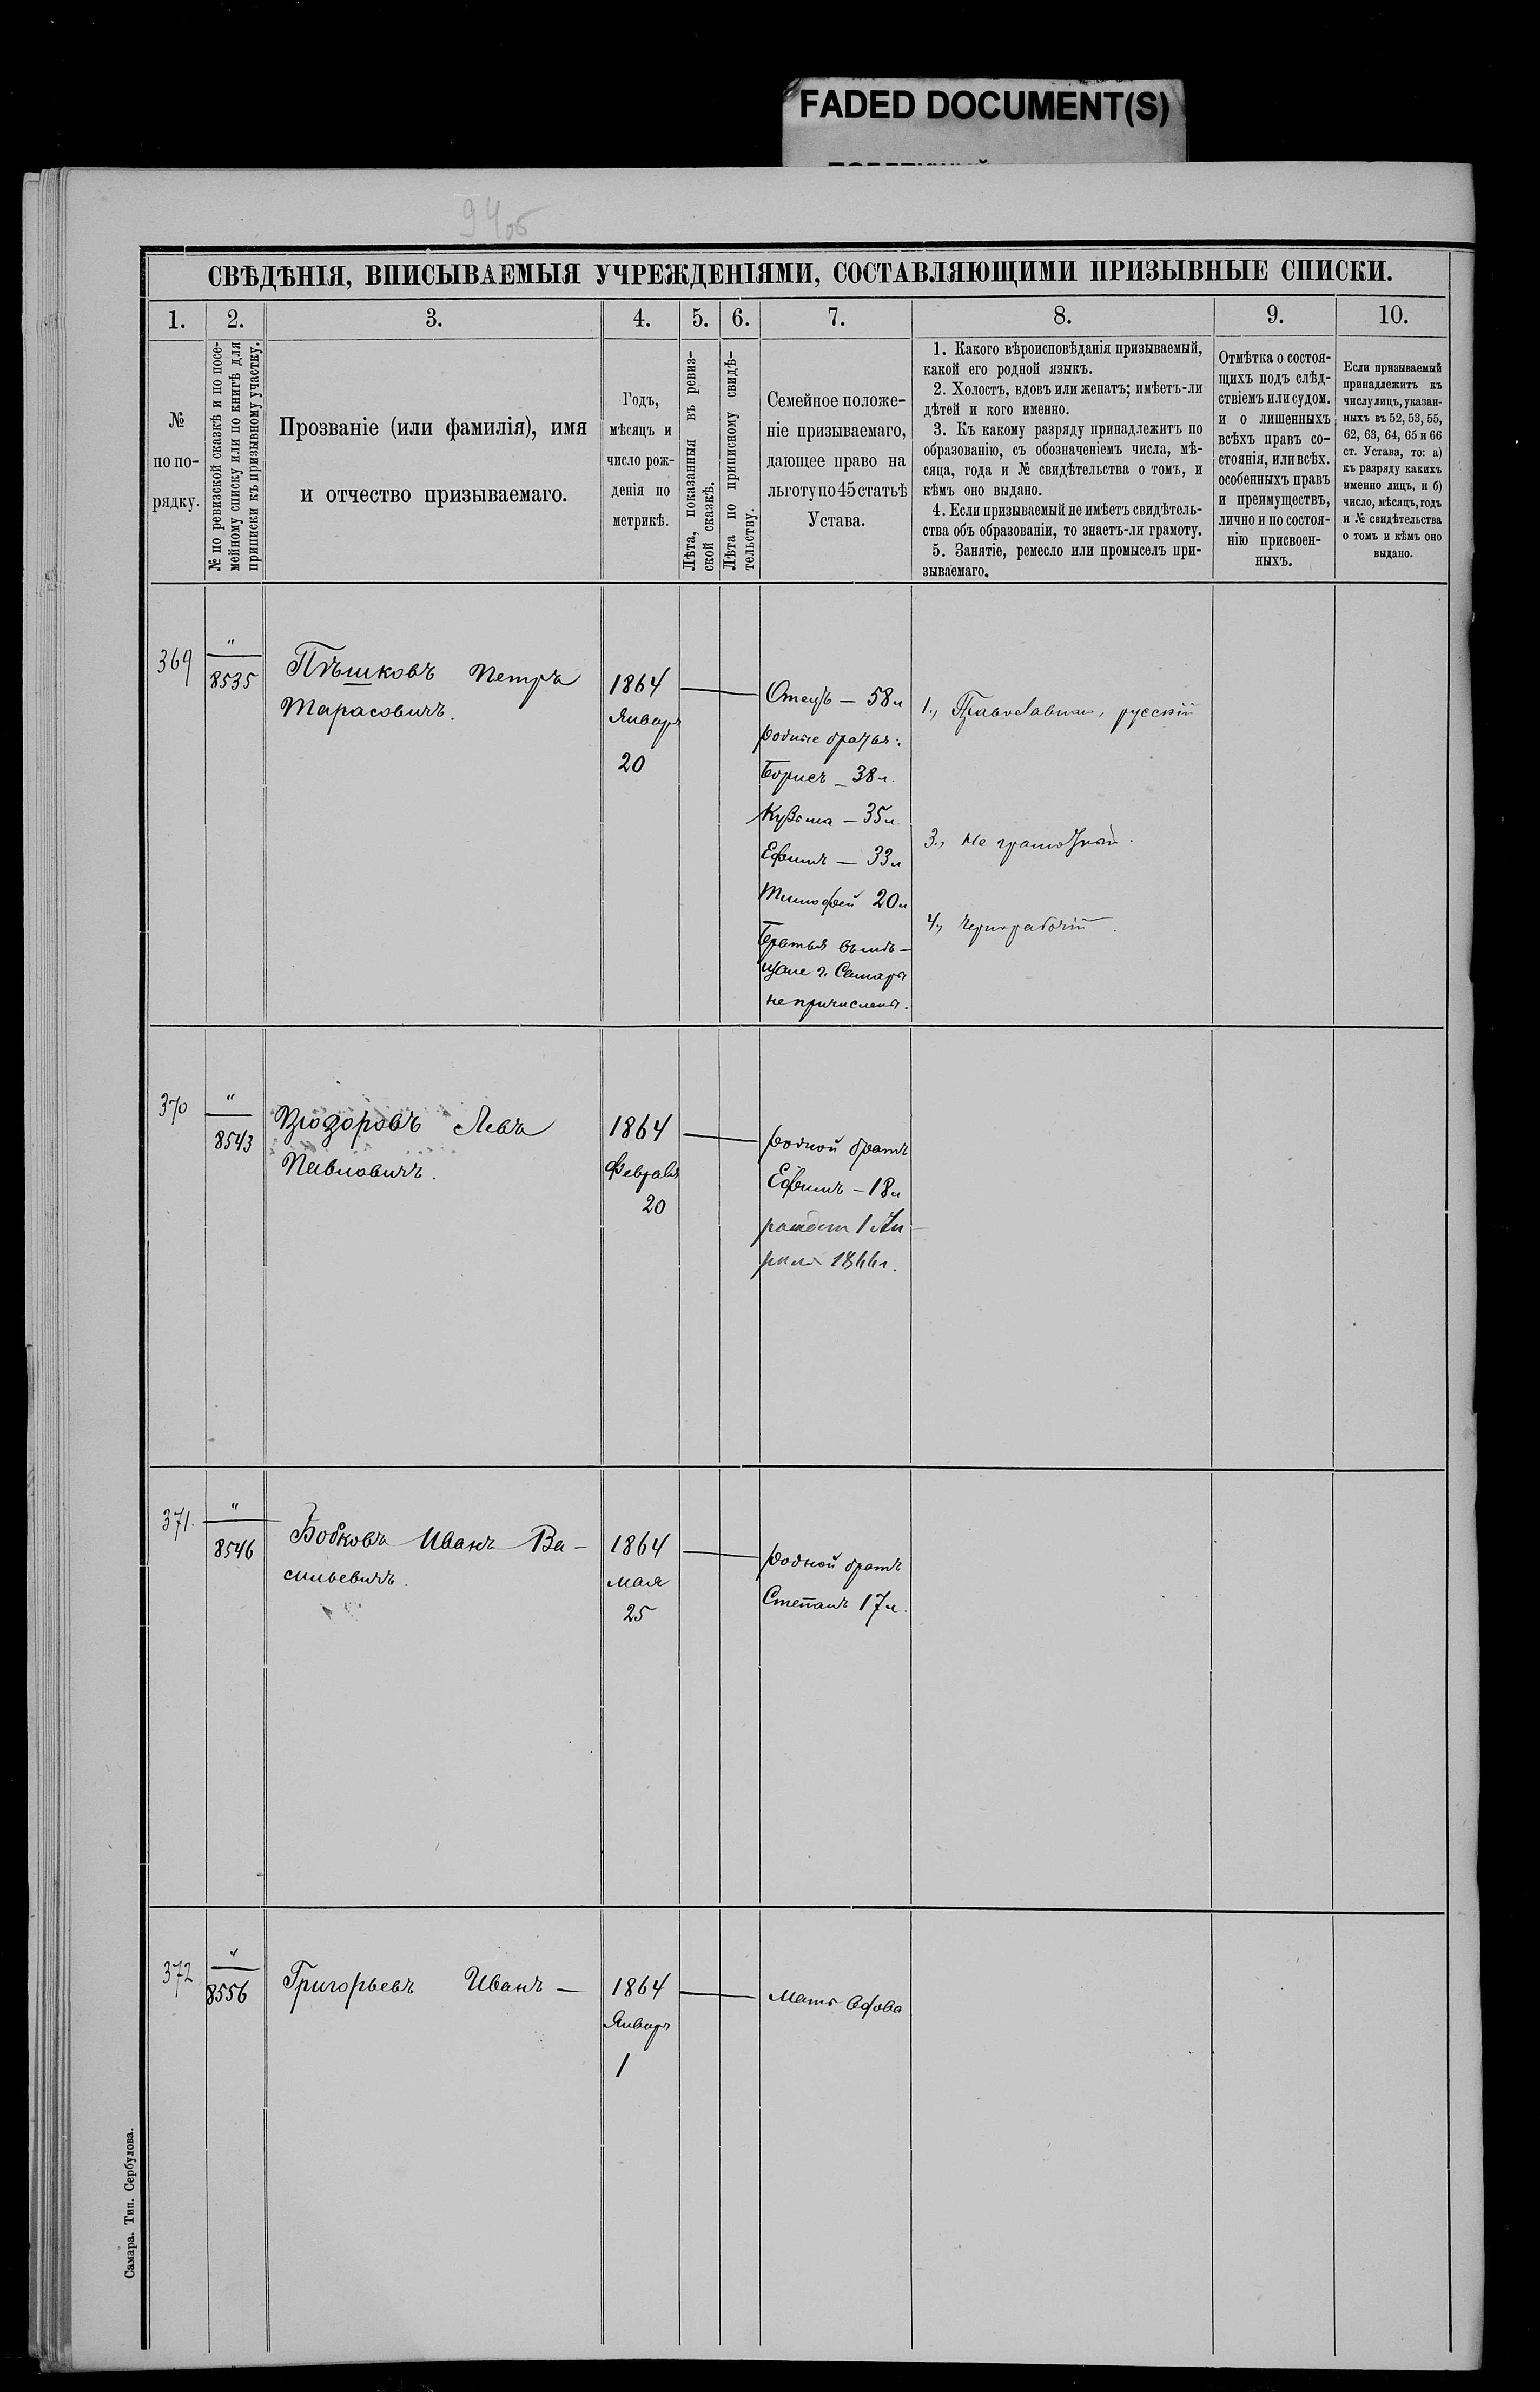 FADED DOCUMENT(S)
94об
СВѢДѢНІЯ, ВПИСЫВАЕМЫЯ УЧРЕЖДЕНІЯМИ, СОСТАВЛЯЮЩИМИ ПРИЗЫВНЫЕ СПИСКИ.
1. 2. 3. 4. 5. 6. 7. 8. 9. 10.
№
по по-
рядку.
№ по ревизской сказкѣ и по посе-
мейному списку или по книгѣ для
приписки къ призывному участку.
Прозваніе (или фамилія), имя
и отчество призываемаго.
Годъ,
мѣсяцъ и
число рож-
денія по
метрикѣ.
Лѣта, показанныя въ ревиз-
ской сказкѣ.
Лѣта по приписному свидѣ-
тельству.
Семейное положе-
ніе призываемаго,
дающее право на
льготу по 45 статьѣ
Устава.
1. Какого вѣроисповѣданія призываемый,
какой его родной языкъ.
2. Холостъ, вдовъ или женатъ; имѣетъ-ли
дѣтей и кого именно.
3. Къ какому разряду принадлежитъ по
образованію, съ обозначеніемъ числа, мѣ-
сяца, года и № свидѣтельства о томъ, и
кѣмъ оно выдано.
4. Если призываемый не имѣетъ свидѣтель-
ства объ образованіи, то знаетъ-ли грамоту.
5. Занятіе, ремесло или промыселъ при-
зываемаго.
Отмѣтка о состоя-
щихъ подъ слѣд-
ствіемъ или судом.
и о лишенныхъ
всѣхъ правъ со-
стоянія, или всѣх.
особенныхъ правъ
и преимуществъ,
лично и по состоя-
нію присвоен-
ныхъ.
Если призываемый
принадлежитъ къ
числу лицъ, указан-
ныхъ въ 52, 53, 55,
62, 63, 64, 65 и 66
ст. Устава, то: а)
къ разряду какихъ
именно лицъ, и б)
число, мѣсяцъ, годъ
и № свидѣтельства
о томъ и кѣмъ оно
выдано.
369
"
8535
Пѣшковъ Петръ
Тарасовичъ.
1864
Январ
20
Отецъ — 58 л
родные братья:
Борисъ — 38 л.
Кузьма — 35 л
Ефимъ — 33 л
Тимофей 20 л
Братья въ мѣ-
щане г. Самары
не причислены.
1., Православный, русскій
3., Не грамотный.
4., Чернорабочій.
370
"
8543
Левъ
Павловичъ.
1864
Февраля
20
родной братъ
Ефимъ — 18 л
1 Ап
реля 1866 г.
371.
"
8546
Бобковъ Иванъ Ва-
сильевичъ.
1864
мая
25
родной братъ
Степанъ 17 л.
372
"
8556
Григорьевъ Иванъ —
1864
Январ
1
Мать вдова
Самара. Тип. Сербулова.